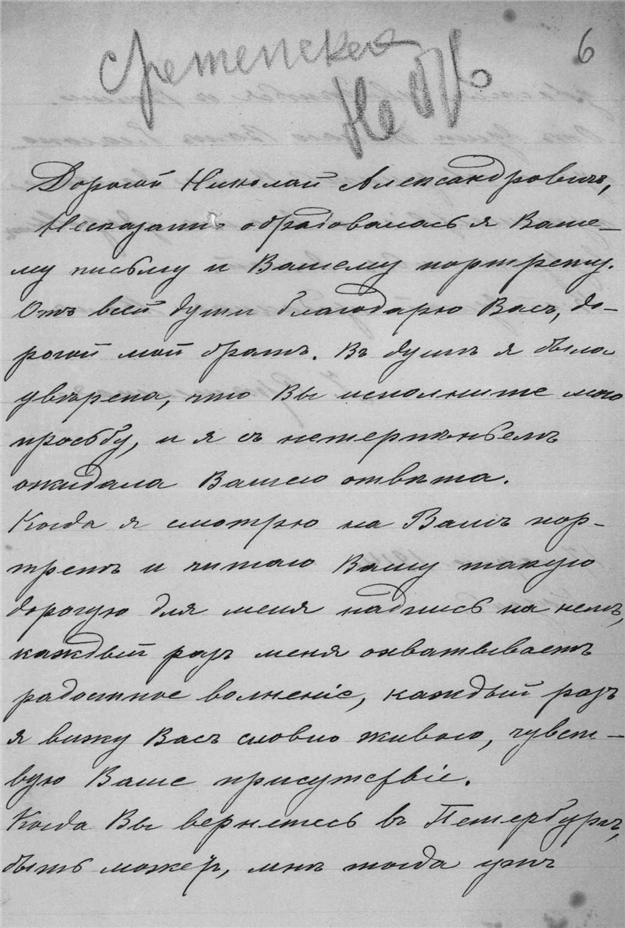 Сретенская
6
Дорогой Николай Александровичъ,
Несказанно обрадовалась я Ваше-
му письму и Вашему портрету.
Отъ всей души благодарю Васъ, до-
рогой мой братъ. Въ душѣ я была
увѣрена, что Вы исполните мою
просьбу, и я съ нетерпѣньемъ
ожидала Вашего отвѣта.
Когда я смотрю на Вашъ пор-
третъ и читаю Вашу такую
дорогую для меня надпись на немъ,
каждый разъ меня охватываетъ
радостное волненіе, каждый разъ
я вижу Васъ словно живого, чувст-
вую Ваше присутствіе.
Когда Вы вернетесь въ Петербургъ,
быть можетъ, мнѣ тогда уже